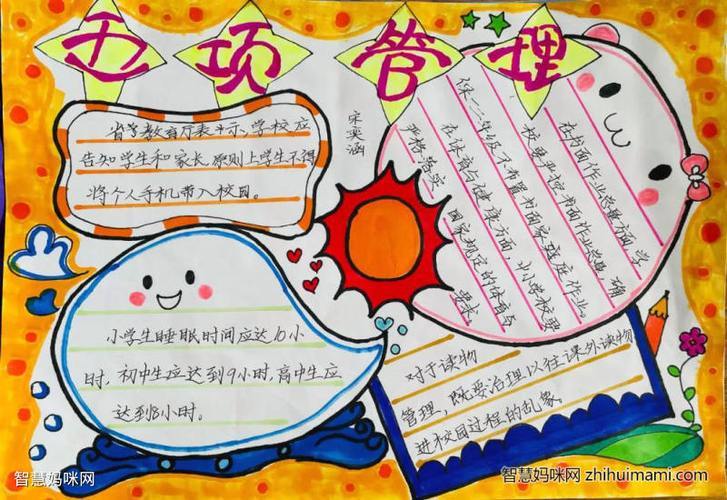 五项管理
省等教育厅表示,学校应
告知学生和家长原则上学生不得
将个人手机带入校园。
宋奕涵
在书面作业总量方面,学
校要严控书面作业总量,确
保一二年级不布置书面家庭作业。
在体育与健康方面,中小学校理
严格落实国家规定的体育与
要求
小学生睡眠时间应达10小
时,初中生应达到9小时,高中生应
达到8小时。
对于读物
管理,既要治理以往课外读物
进校园过程的乱象。
智慧妈咪网
智慧妈咪网 zhihuimami.com